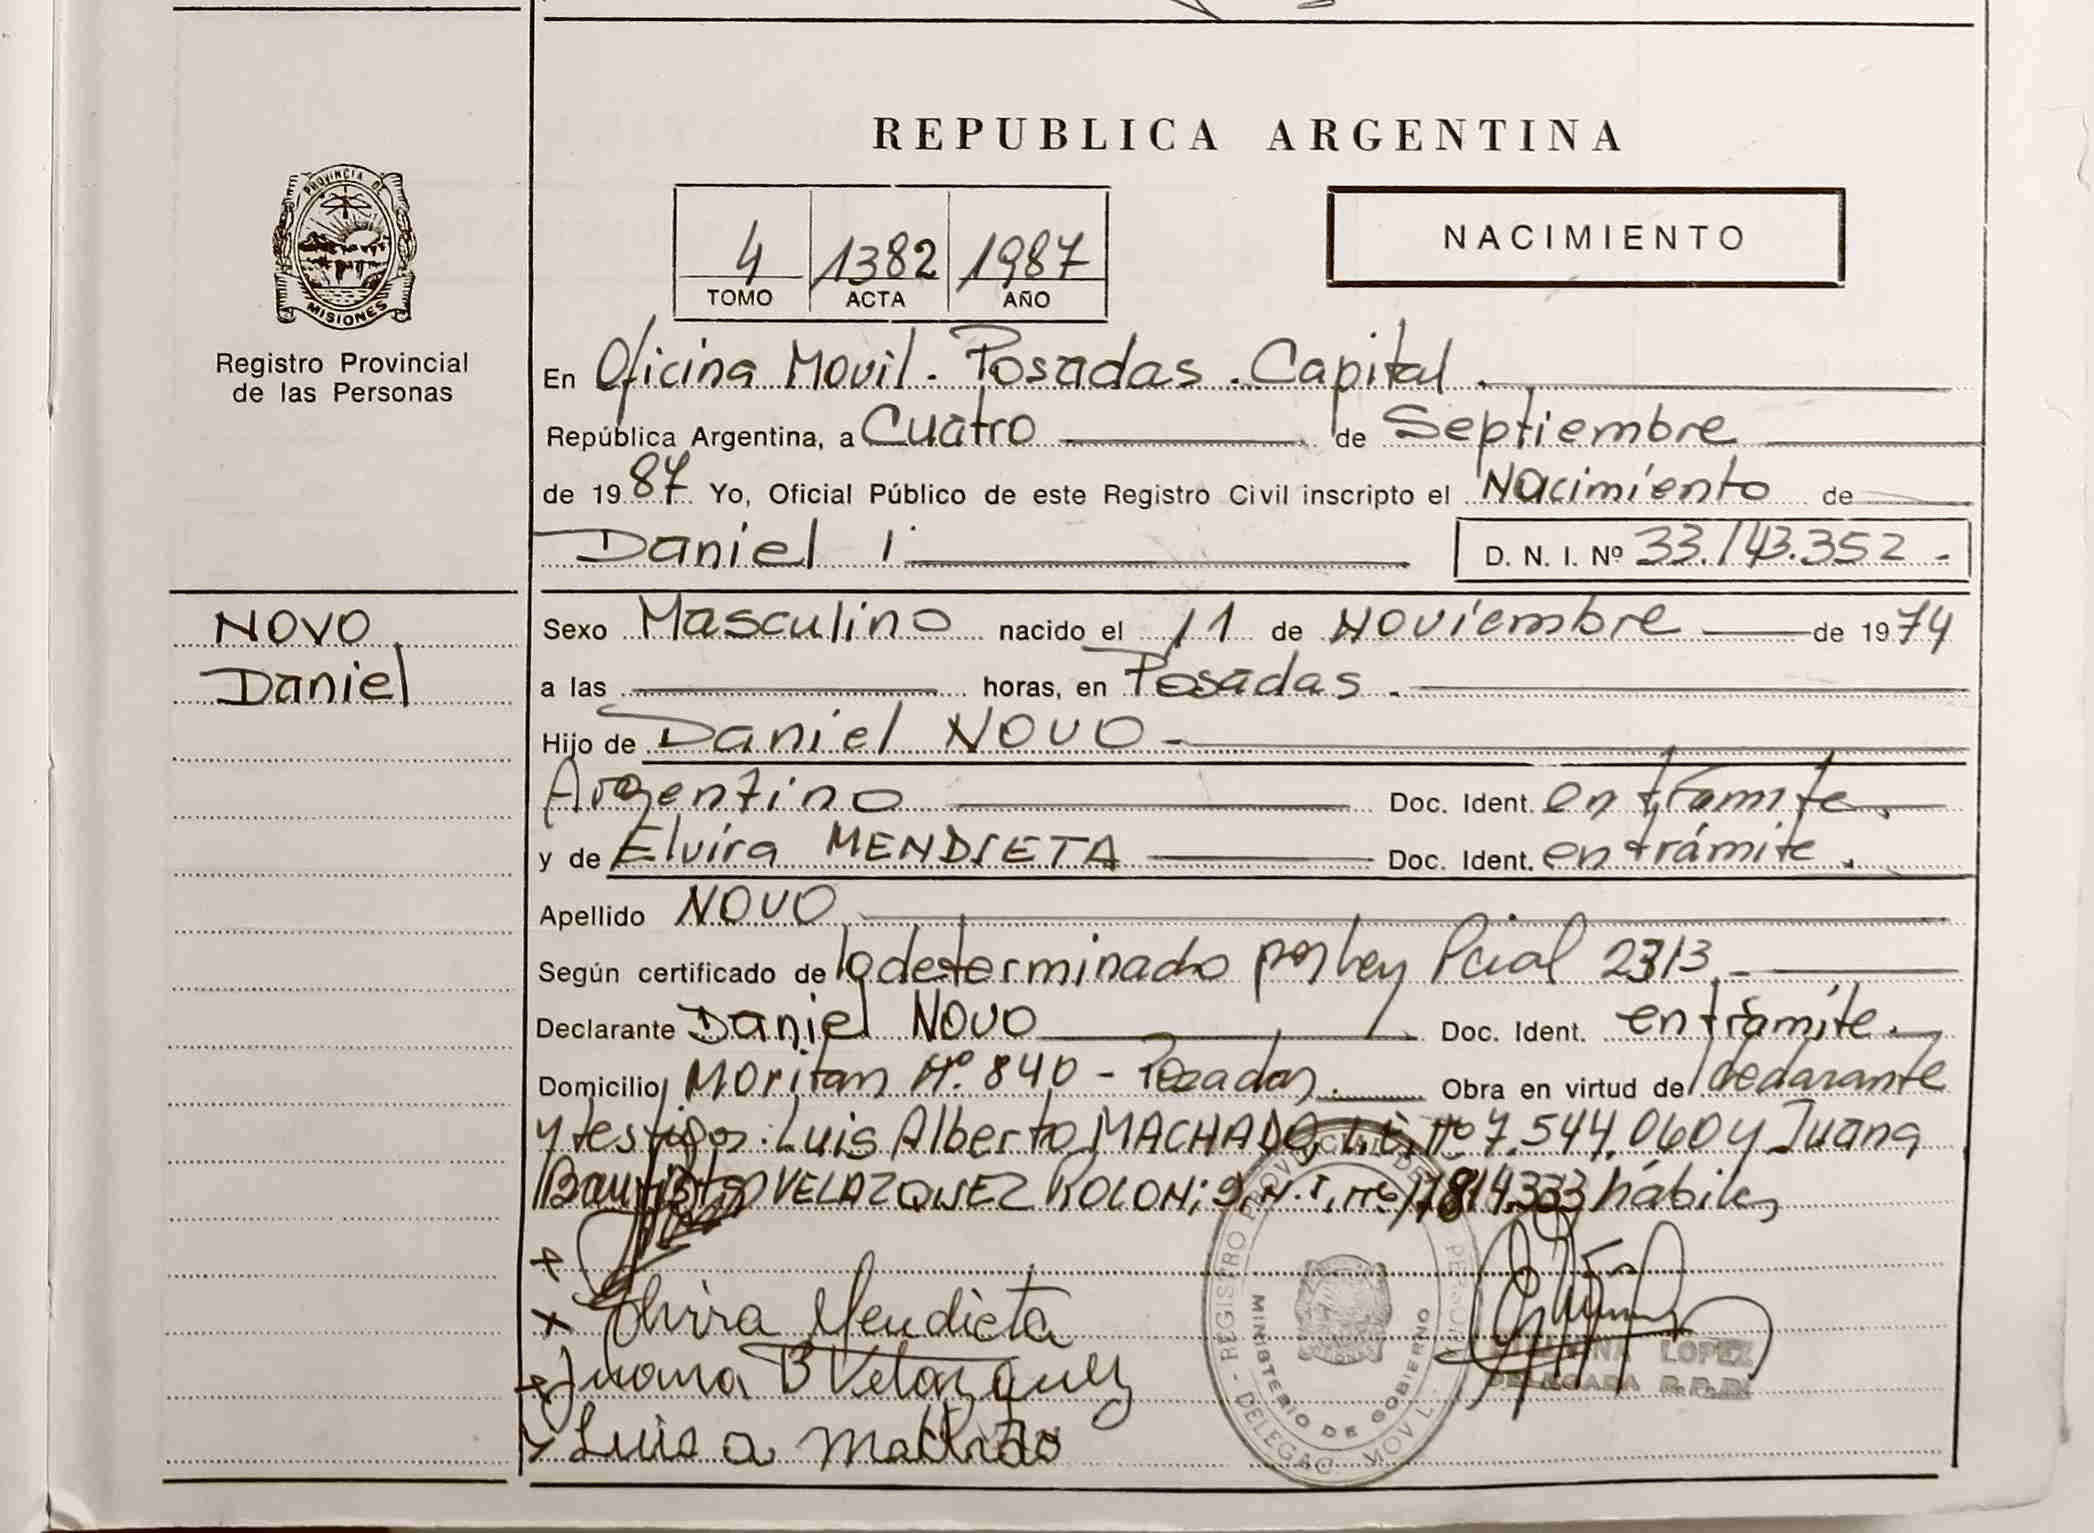 REPUBLICA ARGENTINA
PROVINCIA DE
MISIONES
Registro Provincial
de las Personas
4 1382 1987
TOMO ACTA AÑO
NACIMIENTO
En Oficina Movil. Posadas. Capital.
República Argentina, a Cuatro de Septiembre
de 1987 Yo, Oficial Público de este Registro Civil inscripto el Nacimiento de
Daniel
D. N. I. Nº 33.143.352.-
NOVO
Daniel
Sexo Masculino nacido el 11 de Noviembre de 1974
a las horas, en Posadas.
Hijo de Daniel NOVO-
Argentino Doc. Ident. en tramite.
y de Elvira MENDIETA Doc. Ident. en trámite.
Apellido NOVO
Según certificado de lo determinado por Ley Pcial 2313.-
Declarante Daniel NOVO Doc. Ident. en trámite.-
Domicilio Moritan Nº. 840 - Posadas. Obra en virtud de declarante
y testigos: Luis Alberto MACHADO, L.E. Nº 7.544.060 y Juana
Bautista VELAZQUEZ ROLON; D.N.I. Nº hábiles
Elvira Mendieta
Juana B Velazquez
Luis a Machado
REGISTRO PROVINCIAL DE
MINISTERIO DE GOBIERNO
DELEGAC. MOVIL
LOPEZ
DELEGADA R.P.P.